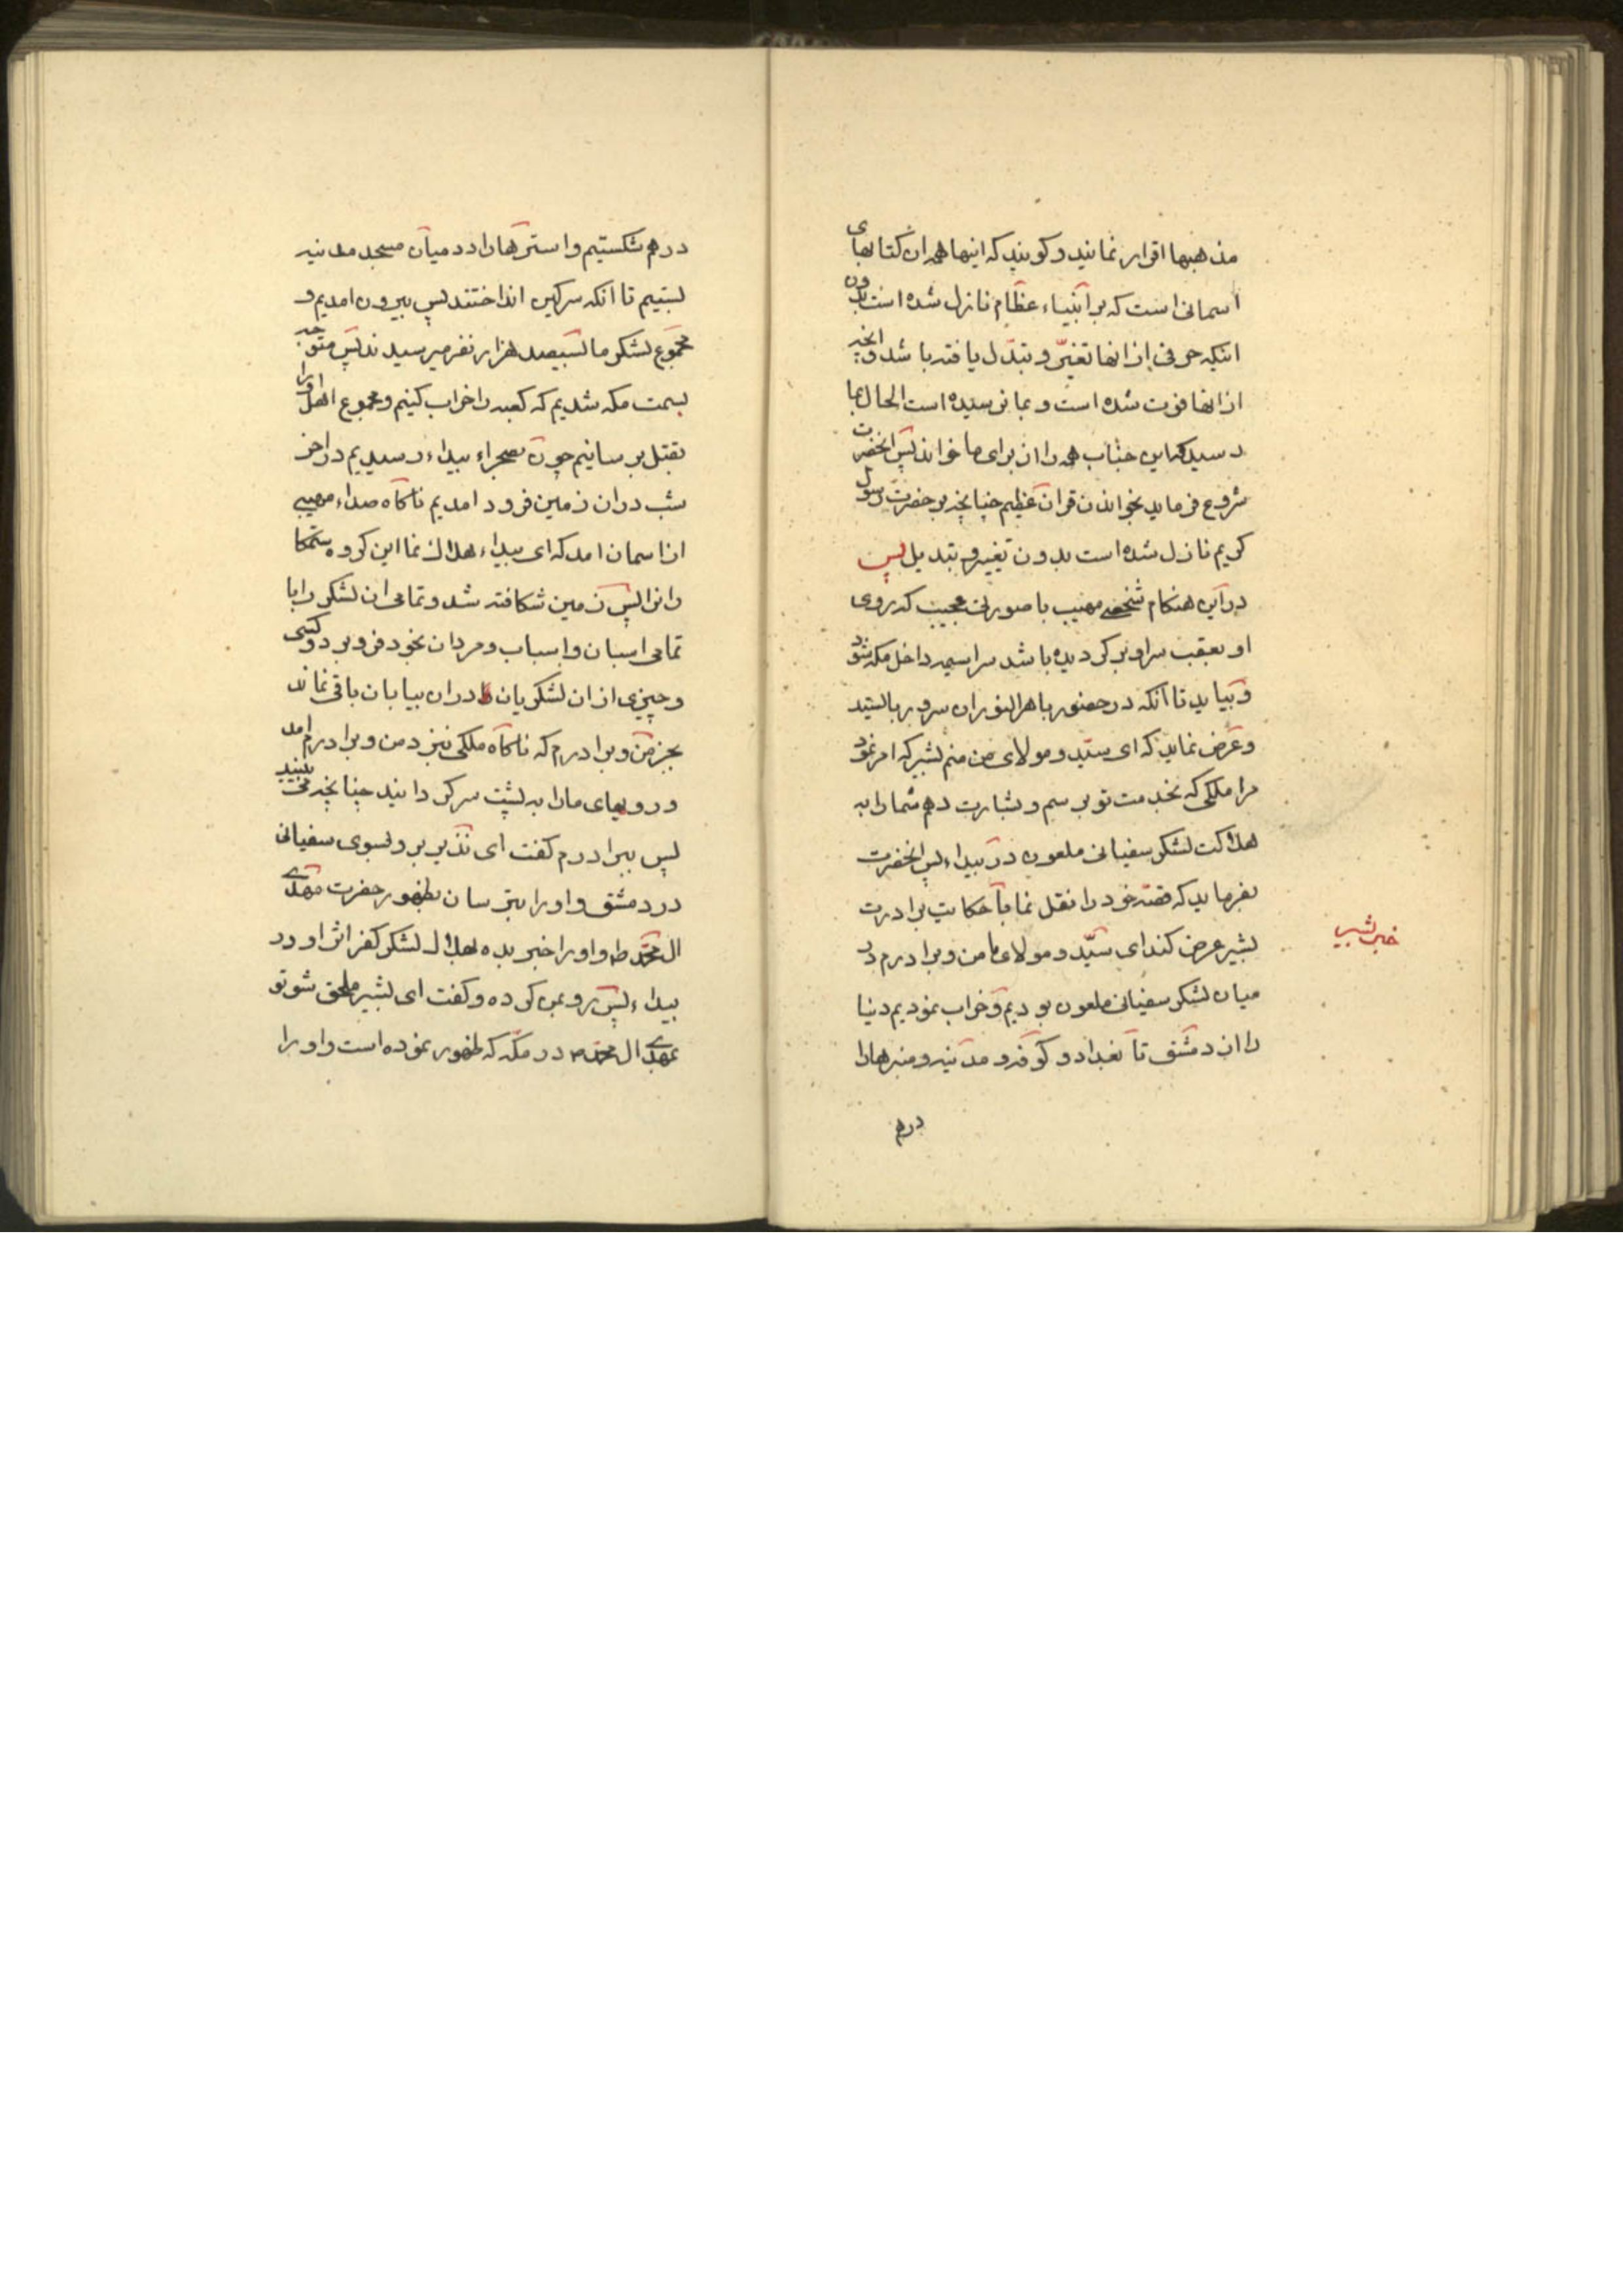 مذهبها اقرار نمایند و کویند که اینها همان کتابهای
اسمانی است که بر انبیاء عظام نازل شده است بدون
اینکه حرفی از انها تغیّر و تبدّل یافته باشد و انچه
از انها فوت شده است و بما نرسیده است الحال بما
رسید که این جناب همه را از برای ما خواند پس انحضرت
شروع فرماید بخواندن قران عظیم چنانچه بر حضرت رسول
کریم نازل شده است بدون تغییر و تبدیل پس
در این هنکام شخصی مهیب با صورت عجیب که روی
او بعقب سر او بر کردیده باشد سراسیمه داخل مکه شود
و بیاید تا آنکه در حضور باهر النور ان سرور بایستد
و عرض نماید که ای سیّد و مولای من منم بشیر که امر نمود
مرا ملکی که بخدمت تو برسم و بشارت دهم شما را به
هلاکت لشکر سفیانی ملعون در بیداء پس انحضرت
بفرماید که قصّه خود را نقل نما با حکایت برادرت
خبر بشیر
بشیر عرض کند ای سیّد و مولای ما من و برادرم در
میان لشکر سفیانی ملعون بودیم و خراب نمودیم دنیا
را از دمشق تا بغداد و کوفه و مدینه و منبرها را
درهم
درهم شکستیم و استرها را در میان مسجد مدینه
بستیم تا انکه سرکین انداختند پس بیرون امدیم و
مجموع لشکر ما بسیصد هزار نفر میرسیدند پس متوجه
بسمت مکه شدیم که کعبه را خراب کنیم و مجموع اهل اورا
بقتل برسانیم چون بصحراء بیداء رسیدیم در اخر
شب در ان زمین فرود امدیم ناکاه صداء مهیبی
از اسمان امد که ای بیداء هلاک نما این کروه ستمکا
رانرا پس زمین شکافته شد و تمامی ان لشکر را با
تمامی اسبان و اسباب و مردان بخود فرو برد و کسی
و چیزی از ان لشکریان در ان بیابان باقی نماند
بجز من و برادرم که ناکاه ملکی بنزد من و برادرم امد
و رویهای ما را به پشت سر کردانید چنانچه می بینید
پس ببرادرم کفت ای نذیر برو بسوی سفیانی
در دمشق و او را بترسان بظهور حضرت مهدی
ال محمّد و او را خبر بده بهلاک لشکر کفر اثر او در
بیداء پس رو بمن کرده و کفت ای بشیر ملحق شو تو
بمهدی ال محمّد در مکّه که ظهور نموده است و او را